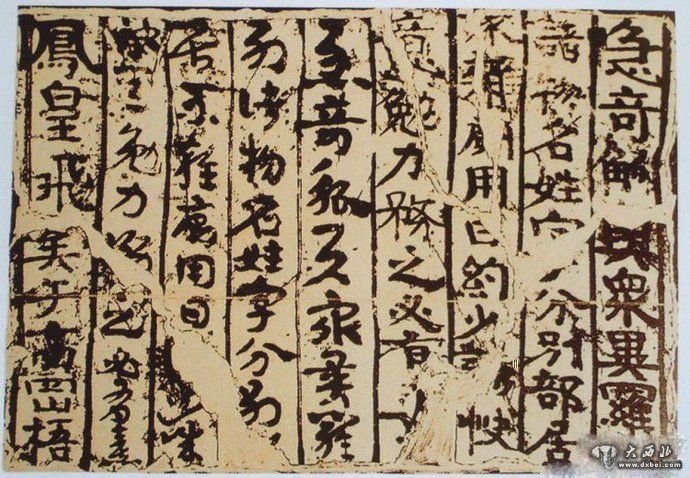 急奇觚與衆異羅
諸物名姓字分別部居
雜廁用日約少誠快
意勉力務之必有
急奇觚與衆異羅
列諸物名姓字分別
居不雜廁用日
意勉力務之必有憙
鳳皇飛矣于高岡梧
大西北
www.dxbei.com